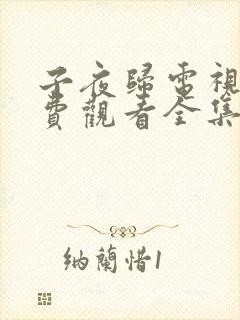 子夜歸電視
費觀看全集
纳蘭惜1